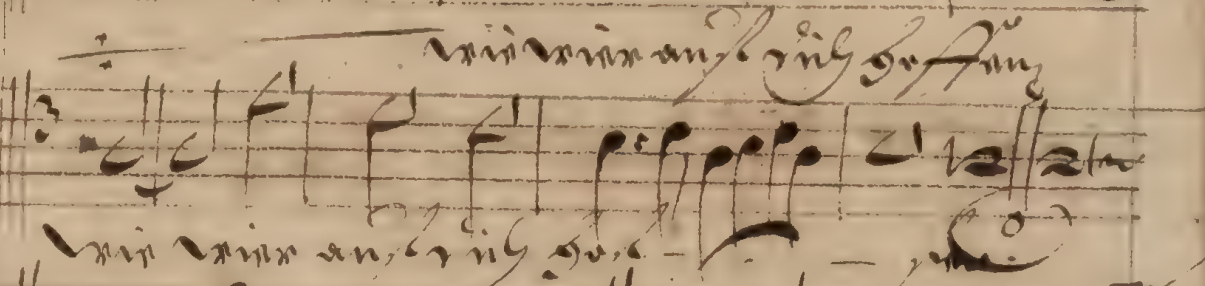 wie wier auf dich hoffen
wie wier auf dich hof - - fen.